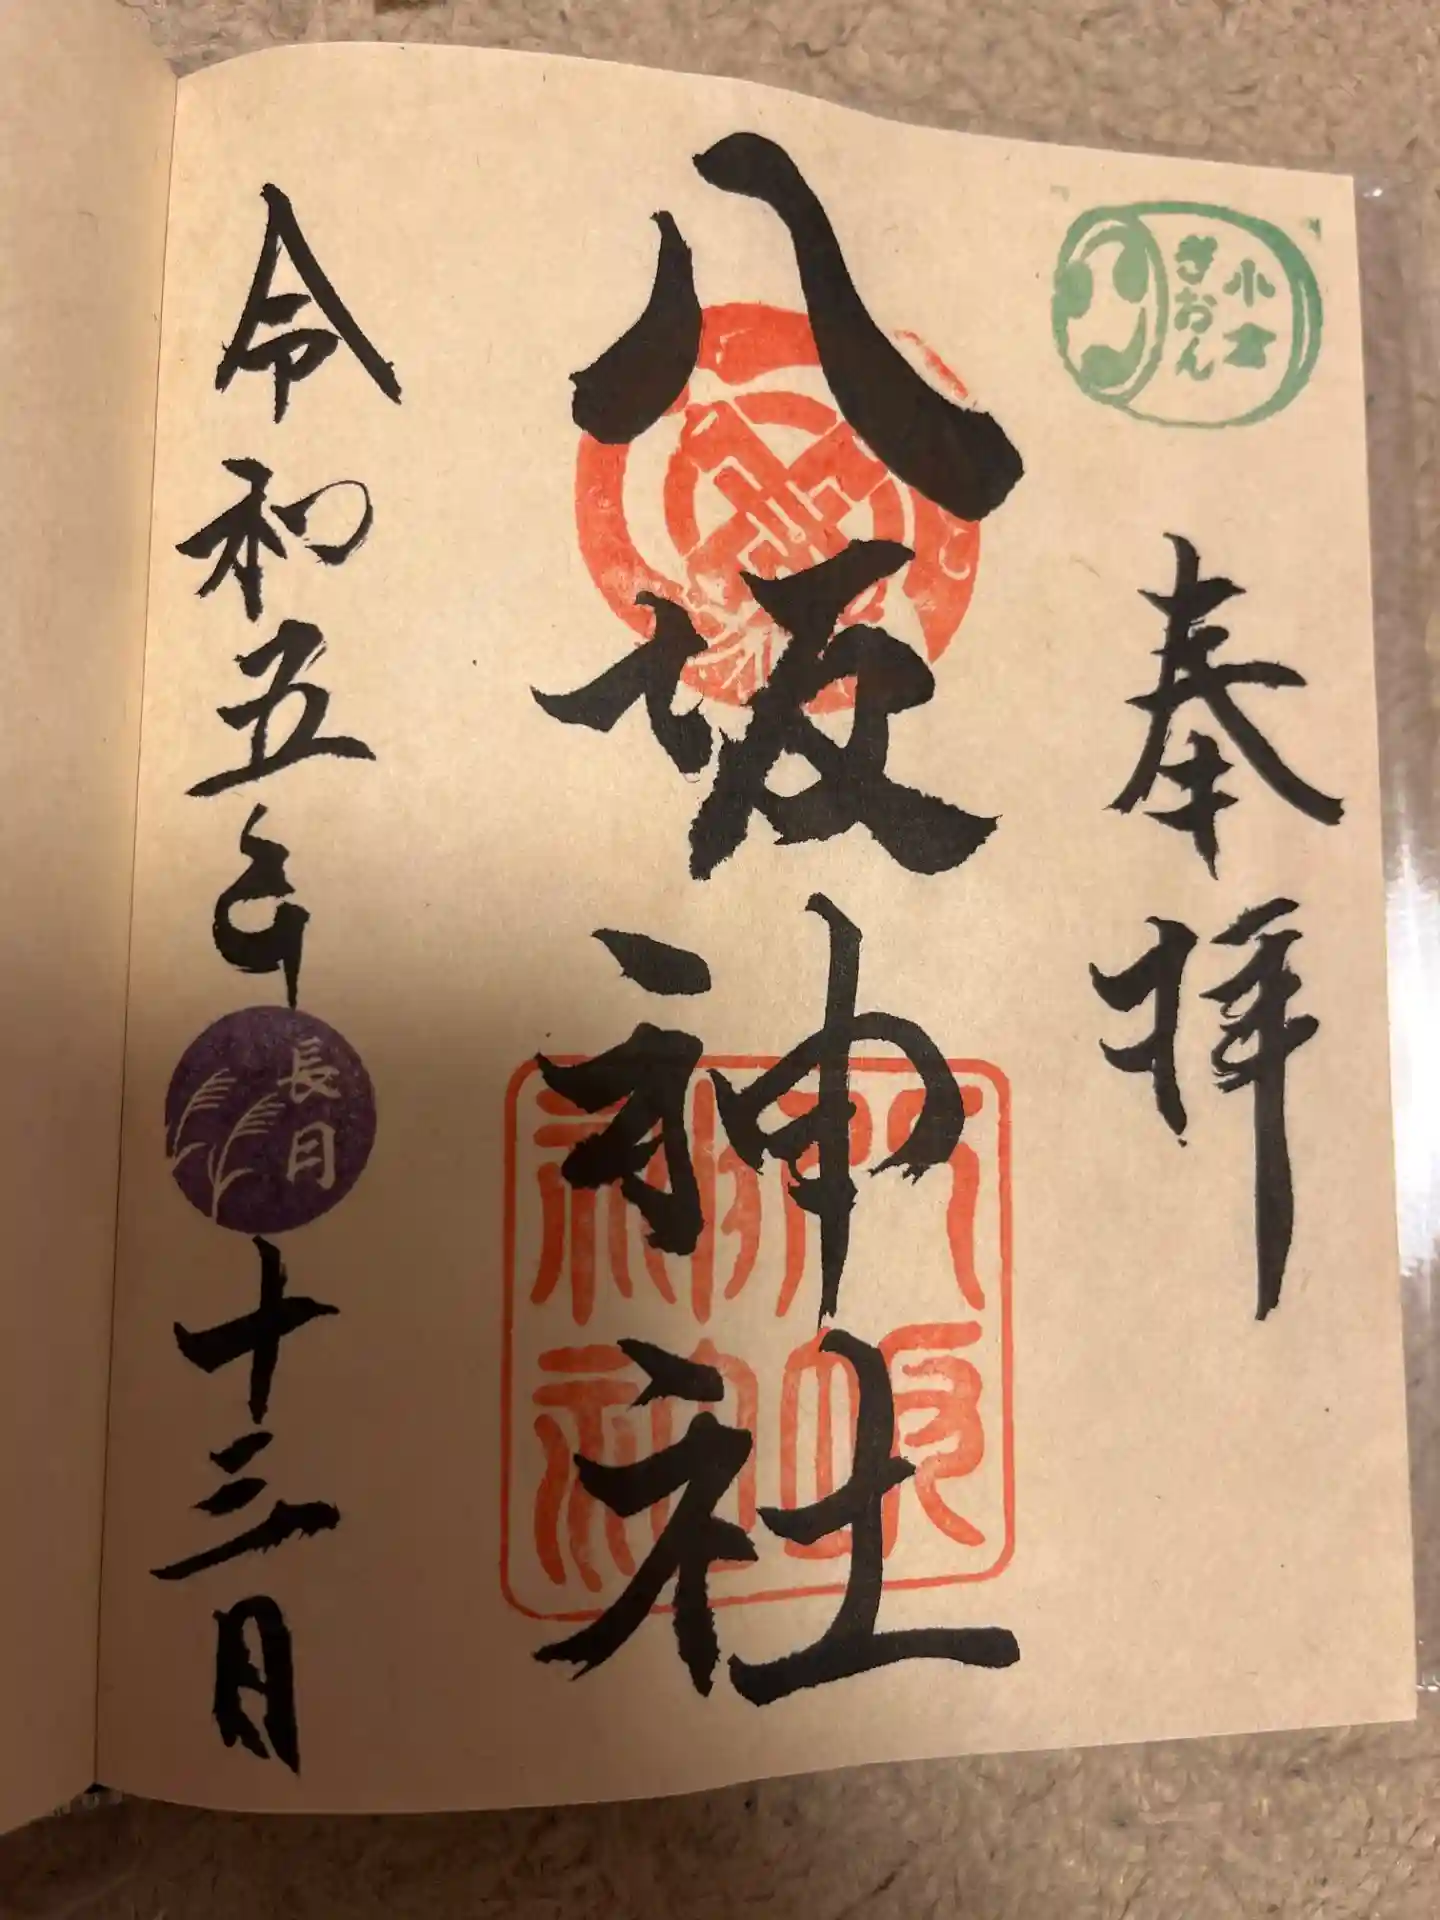 小倉
ぎおん
奉拝
八坂神社
八坂
神社
令和五年
長月
十三日